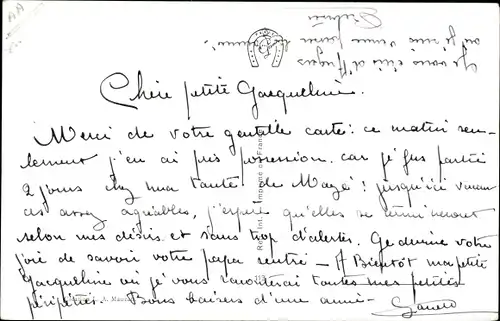 Je vous écris d'Angers
où je suis venue passer la journée.
Chère petite Jacqueline.
Merci de votre gentille carte: ce matin seu-
lement j'en ai pris possession car je fus partie
2 jours chez ma tante de Mazé: jusqu'ici vacan
ces assez agréables, j'espère qu'elles se termineront
selon mes désirs et sans trop d'alertes. Je devine votre
joie de savoir votre papa rentré — A Bientôt ma petite
Jacqueline où je vous raconterai toutes mes petites
péripéties. Bons baisers d'une amie -